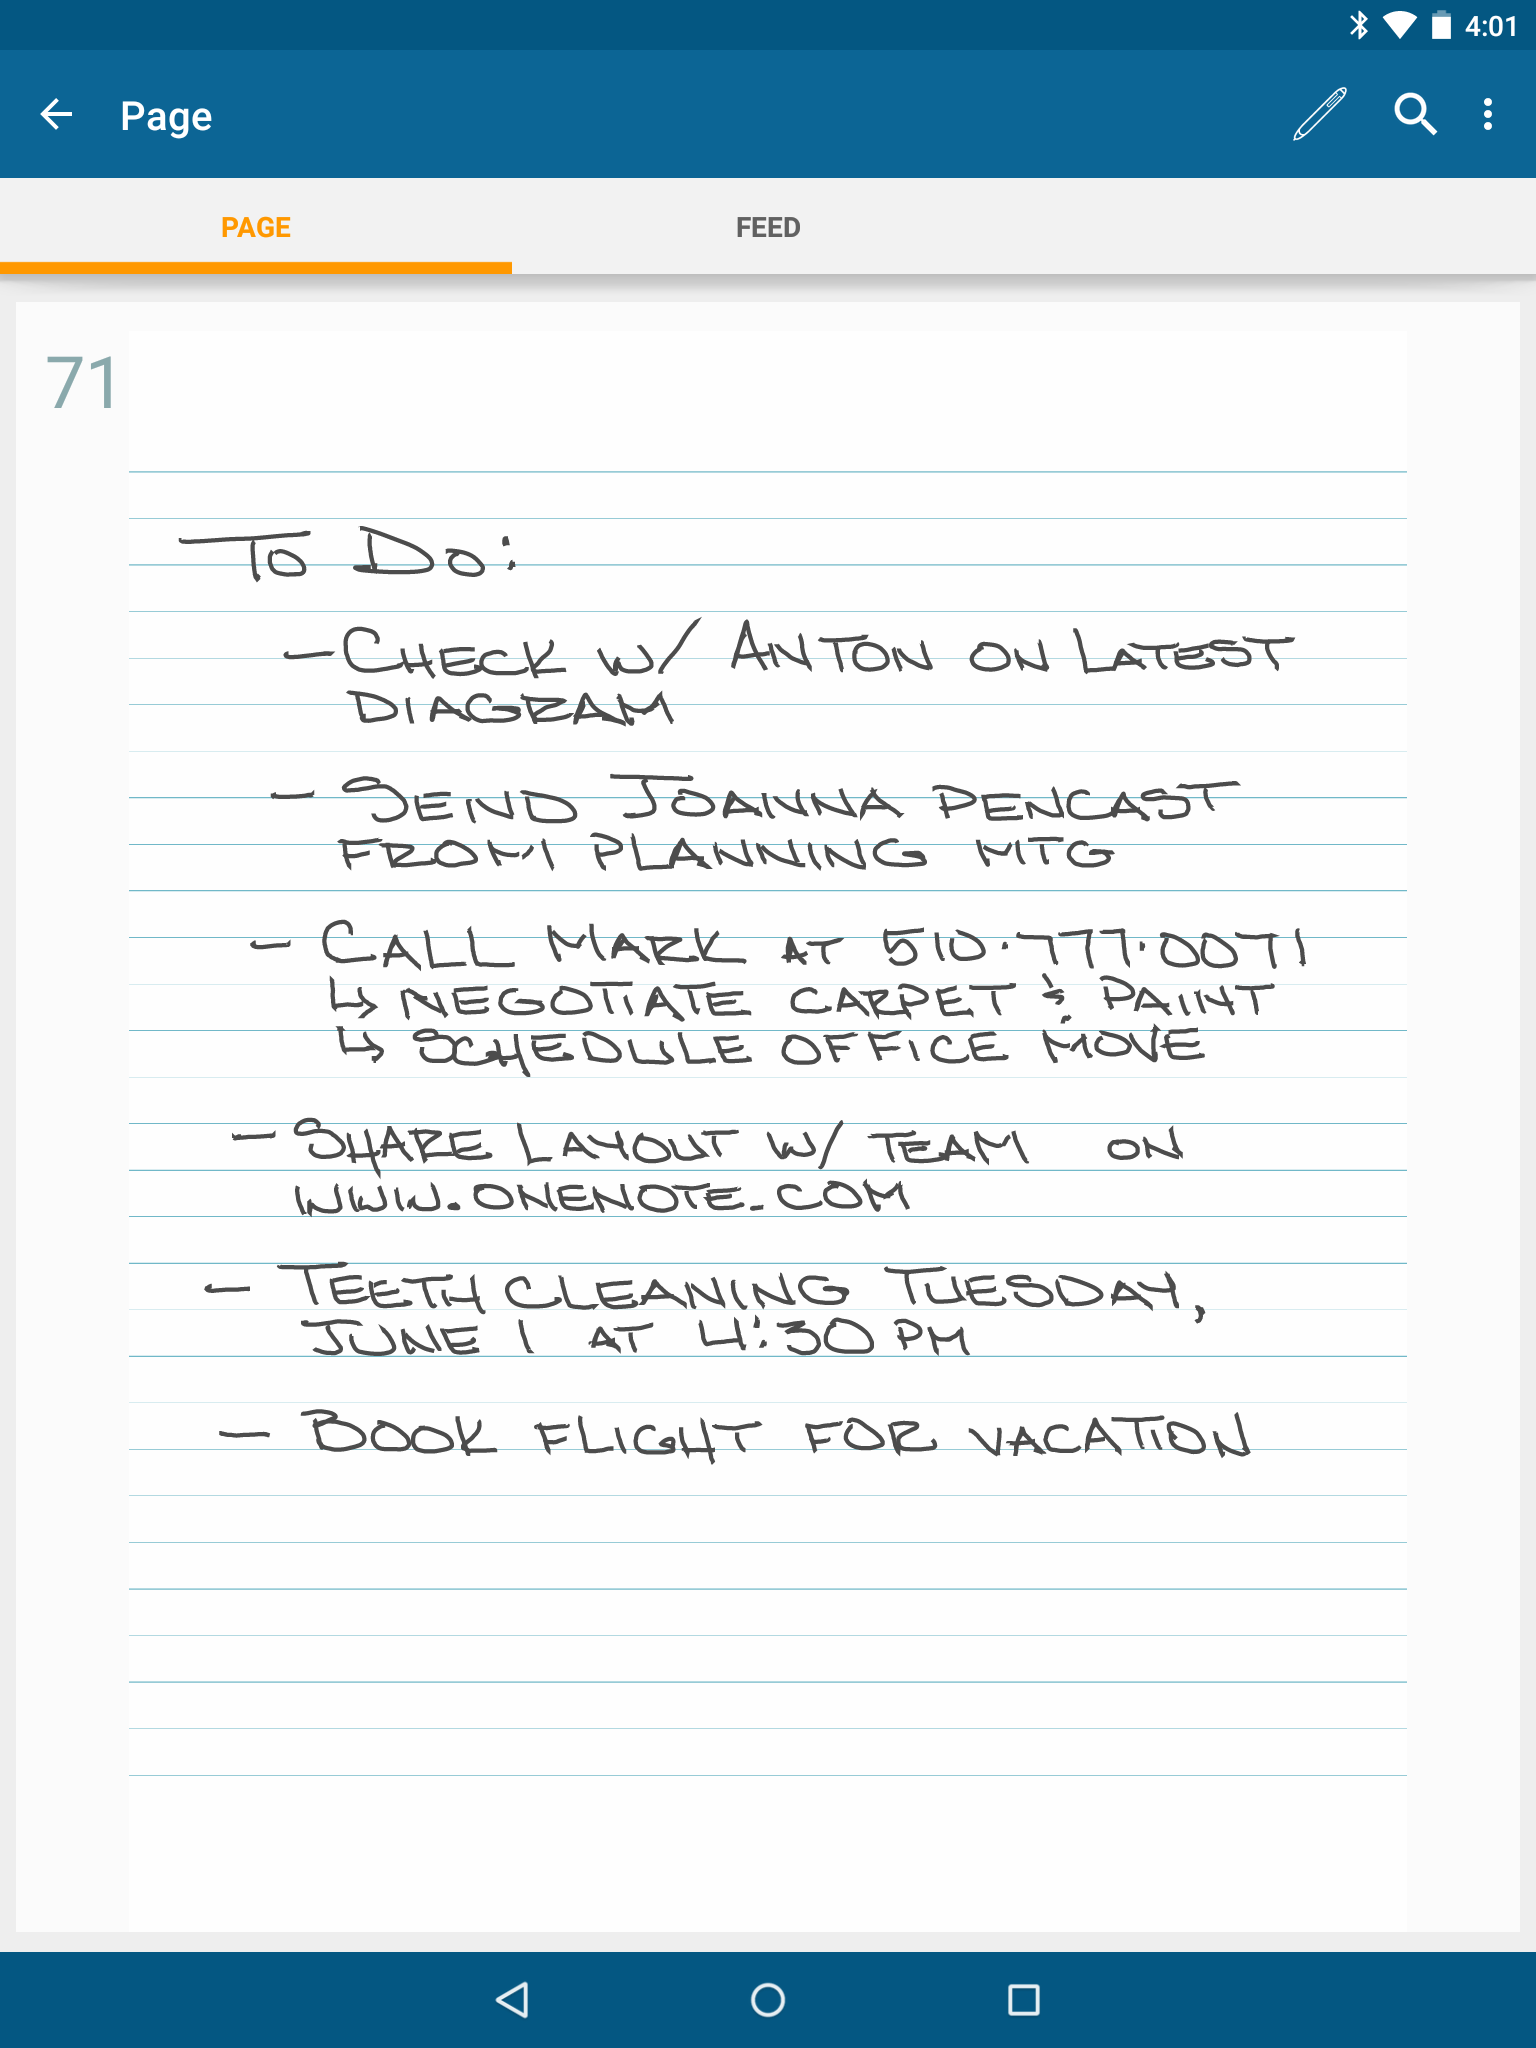 4:01
Page
PAGE FEED
71
To Do:
- CHECK W/ ANTON ON LATEST
DIAGRAM
- SEND JOANNA PENCAST
FROM PLANNING MTG
- CALL MARK AT 510.777.0071
↳ NEGOTIATE CARPET & PAINT
↳ SCHEDULE OFFICE MOVE
- SHARE LAYOUT W/ TEAM ON
WWW.ONENOTE.COM
- TEETH CLEANING TUESDAY,
JUNE 1 AT 4:30 PM
- BOOK FLIGHT FOR VACATION